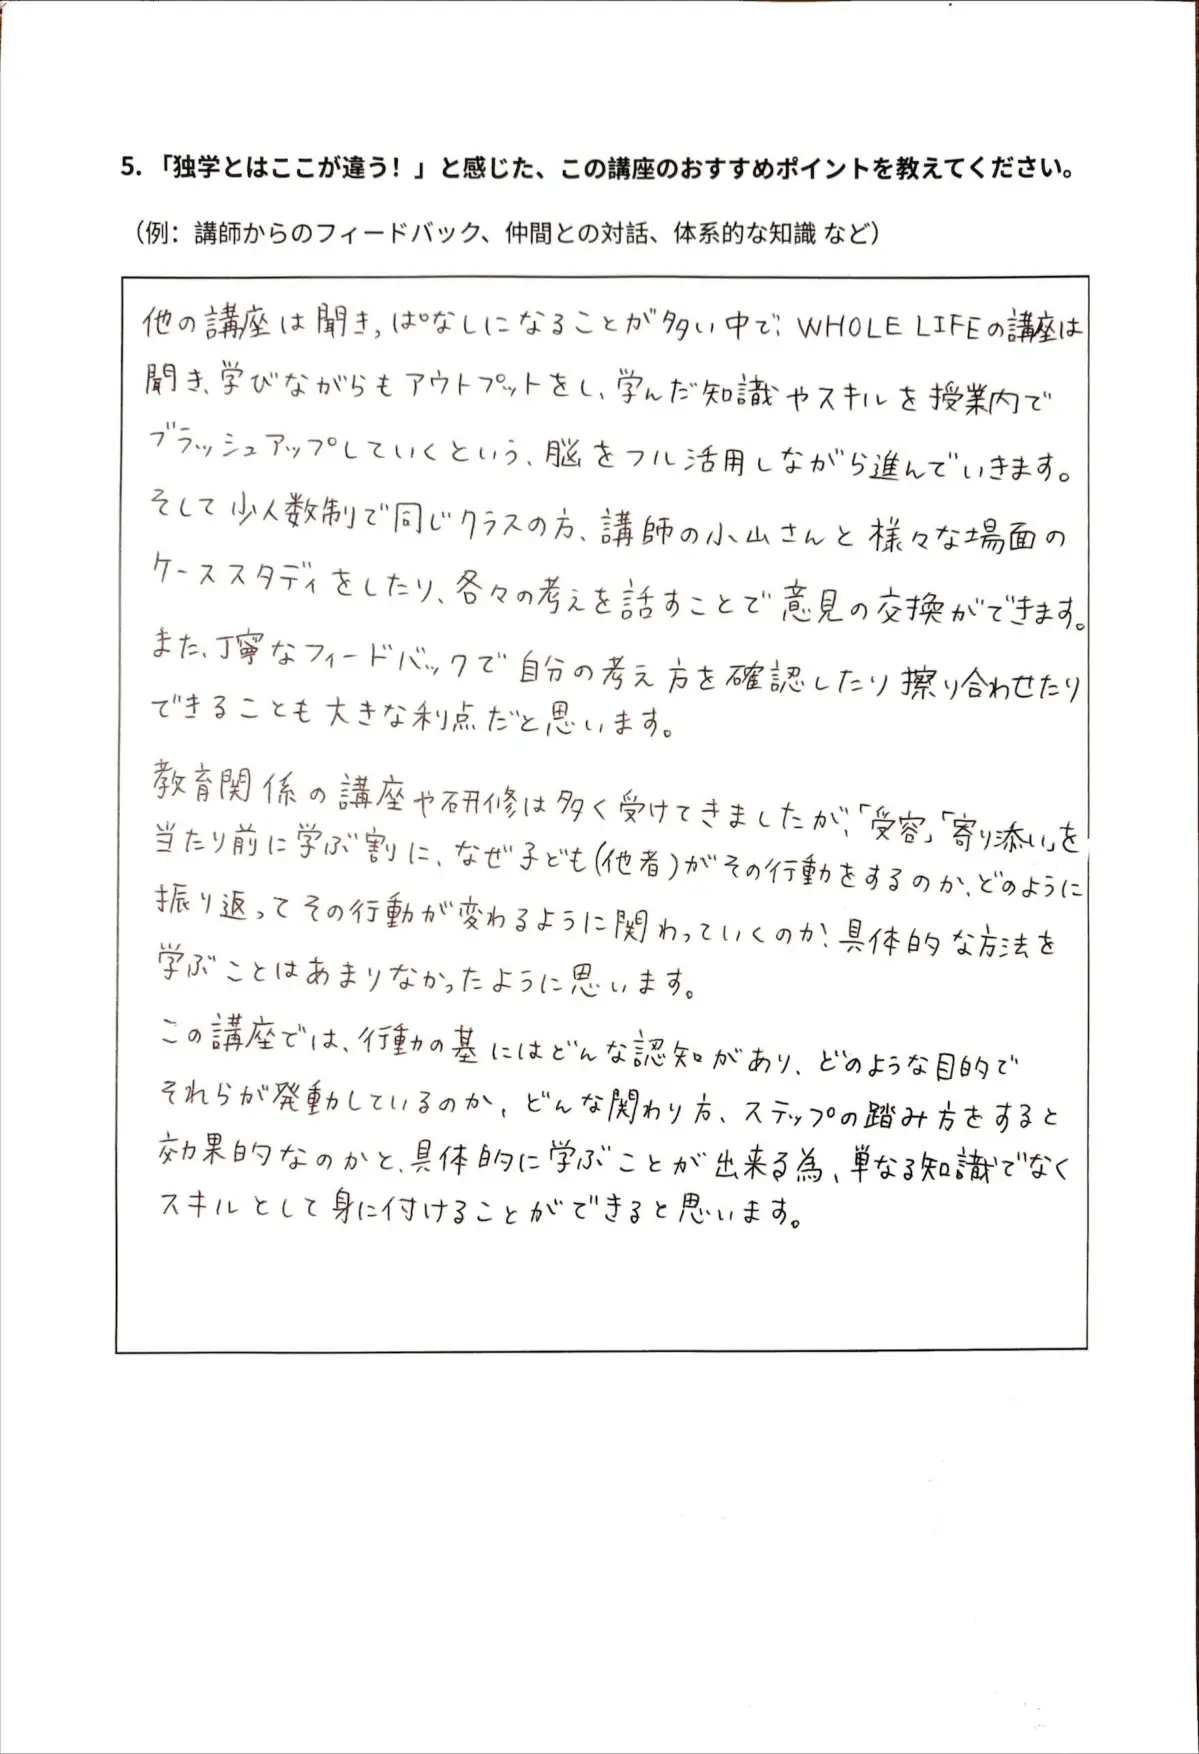 5. 「独学とはここが違う！」と感じた、この講座のおすすめポイントを教えてください。
（例：講師からのフィードバック、仲間との対話、体系的な知識 など）
他の講座は聞きっぱなしになることが多い中で、WHOLE LIFEの講座は
聞き、学びながらもアウトプットをし、学んだ知識やスキルを授業内で
ブラッシュアップしていくという、脳をフル活用しながら進んでいきます。
そして少人数制で同じクラスの方、講師の小山さんと様々な場面の
ケーススタディをしたり、各々の考えを話すことで意見の交換ができます。
また、丁寧なフィードバックで自分の考え方を確認したり擦り合わせたり
できることも大きな利点だと思います。
教育関係の講座や研修は多く受けてきましたが、「受容」「寄り添い」を
当たり前に学ぶ割に、なぜ子ども(他者)がその行動をするのか、どのように
振り返ってその行動が変わるように関わっていくのか、具体的な方法を
学ぶことはあまりなかったように思います。
この講座では、行動の基にはどんな認知があり、どのような目的で
それらが発動しているのか、どんな関わり方、ステップの踏み方をすると
効果的なのかと、具体的に学ぶことが出来る為、単なる知識でなく
スキルとして身に付けることができると思います。